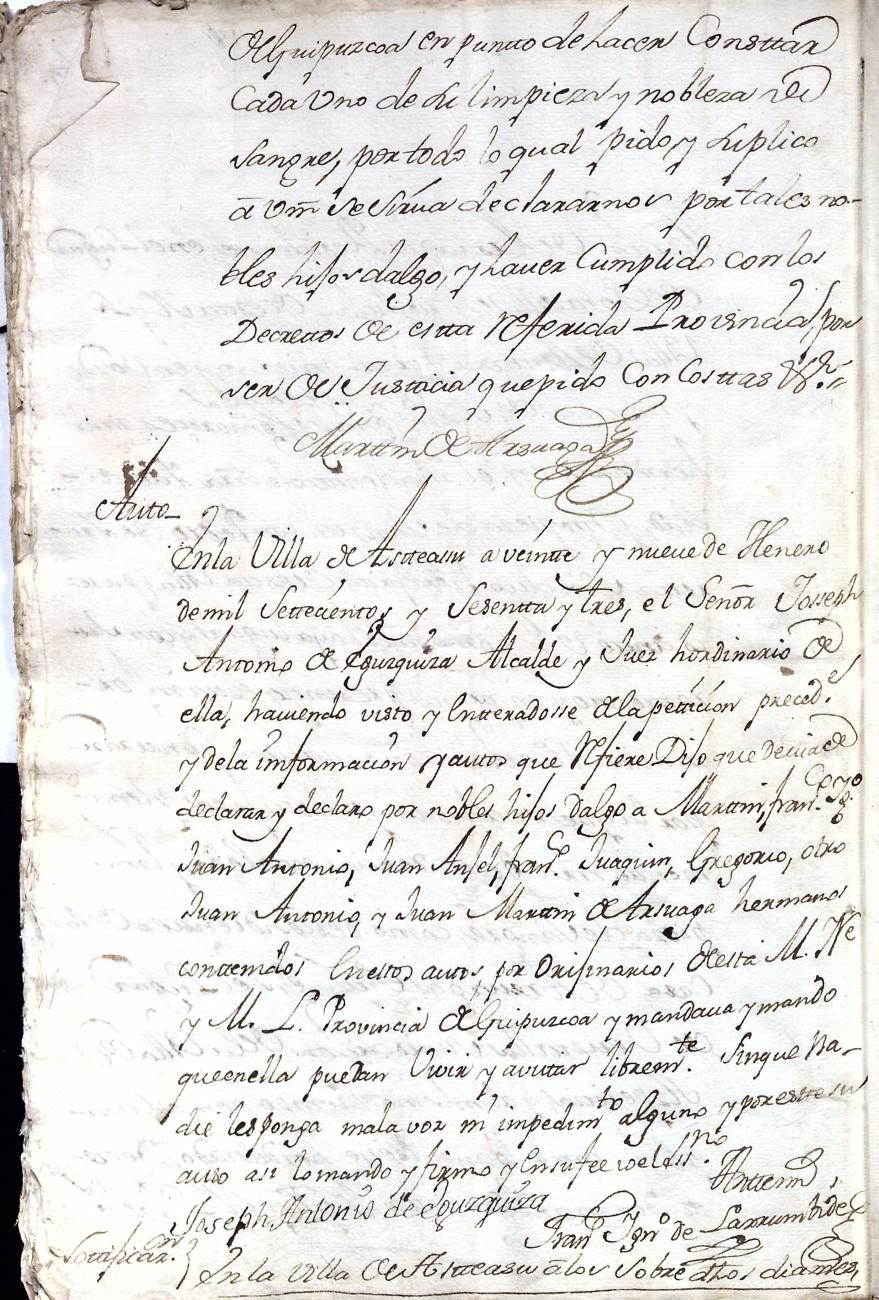 de Guipuzcoa en puntto de hacer Consttar
Cada Uno de su limpieza y nobleza de
sangre, por todo lo qual pido, y suplico
a Vm̃ se sirva declararnos por tales no-
bles hijos dalgo, y haver Cumplido con los
Decrettos de estta referida Provincia, por
ser de Justicia que pido Con Costtas &ª
Marttin de Arsuaga
Auto
En la Villa de Astteasu a veintte y nueve de Henero
de mil Settecientos y Sesentta y tres, el Señor Josseph
Antonio de Eguzquiza Alcalde y Juez hordinario de
ella, haviendo visto y Entteradosse de la petticion preced.e
y de la informacion y autos que refiere Dijo que devia de
declarar y declaro por nobles hijos Dalgo a Marttin, fran.co Ygº
Juan Antonio, Juan Anjel, fran.co Juaquin, Gregorio, otro
Juan Antonio, y Juan Marttin de Arsuaga hermanos
conttenidos En estos autos por Orijinarios de esta M. Ne
y M. L. Provincia de Guipuzcoa y mandava y mando
que en ella puedan Vivir y avitar librem.te Sin que na-
die les ponga mala voz ni impedim.to alguno y por estte su
auto asi lo mando y firmo y En su fee io el ess.no
Joseph Antonio de Eguzquiza
Antte mi,
Fran.co Ygn.o de Larrumbide
Nottificaz.on
En la Villa de Astteasu a los sobre dhos dia mes,